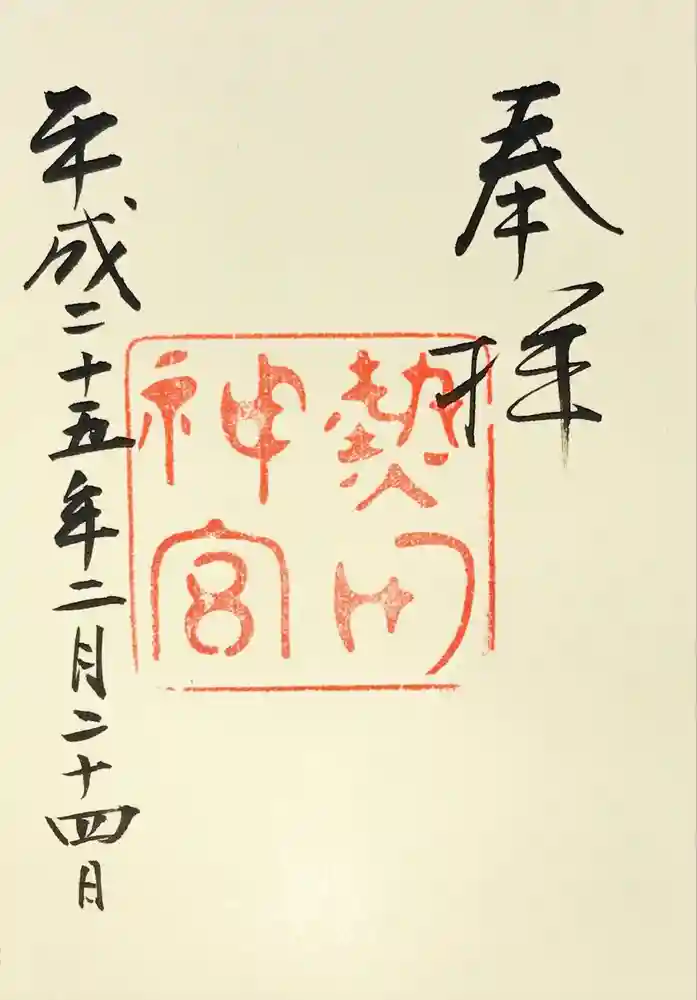 奉拝
熱田
神宮
平成二十五年二月二十四日